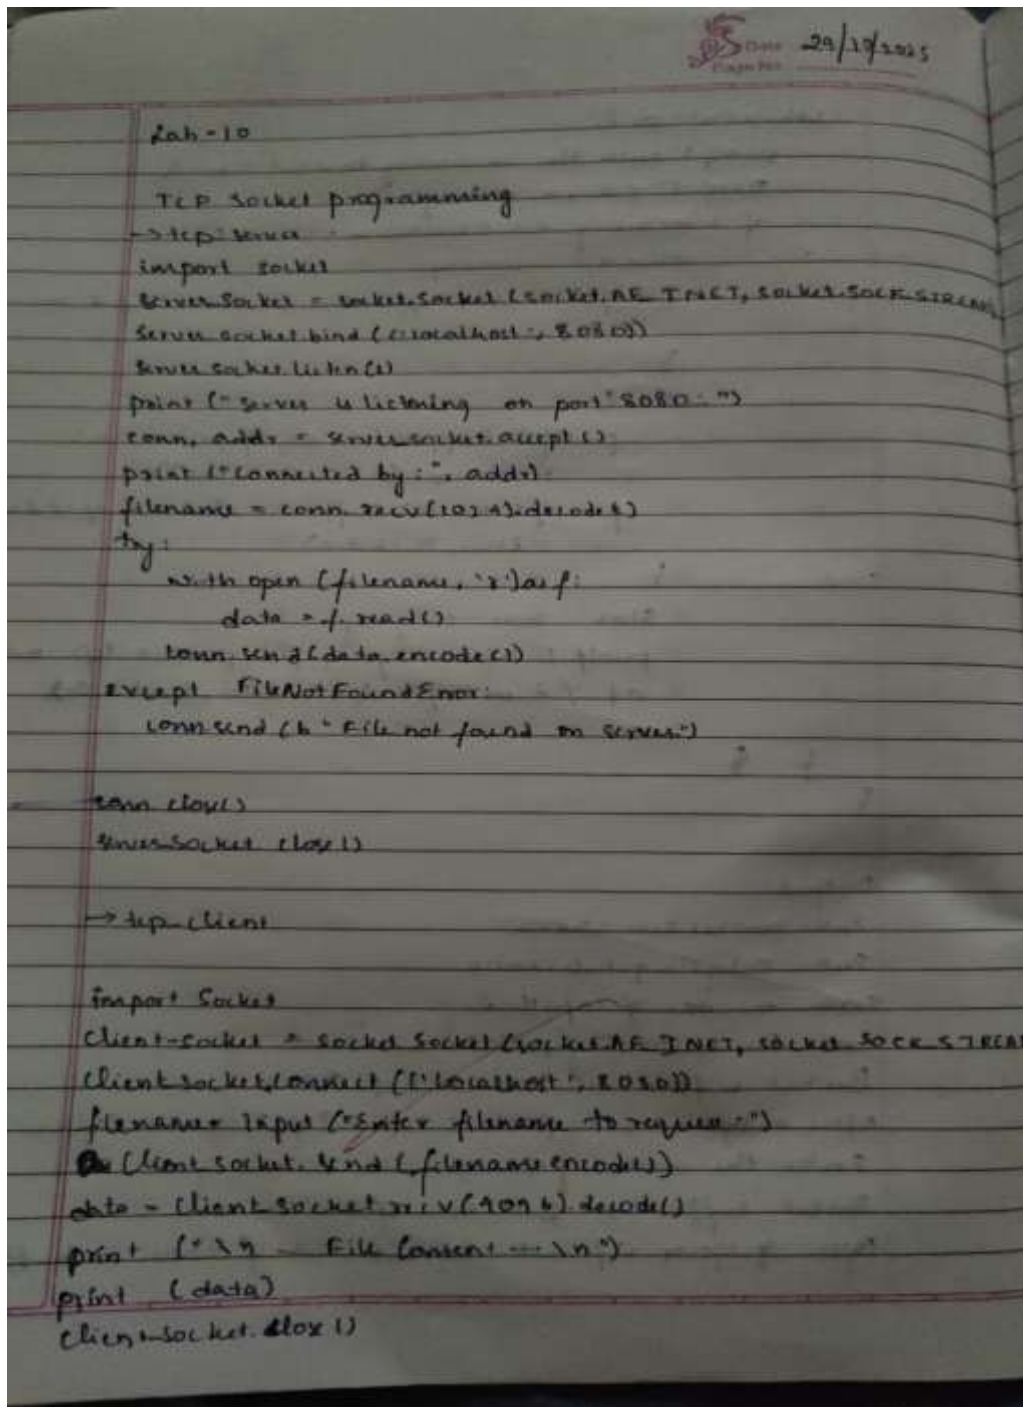 Date 29/10/2025
Lab-10
TCP Socket programming
→ tcp-server
import socket
server_socket = socket.socket (socket.AF_INET, socket.SOCK_STREAM)
server_socket.bind (('localhost', 8080))
server_socket.listen(1)
print ("server is listening on port 8080:")
conn, addr = server_socket.accept()
print ("Connected by:", addr)
filename = conn.recv(1024).decode()
try:
with open (filename, 'r') as f:
data = f.read()
conn.send(data.encode())
except FileNotFoundError:
conn.send (b "File not found on server.")
conn.close()
server_socket.close()
→ tcp-client
import Socket
Client-socket = socket.socket (socket.AF_INET, socket.SOCK_STREAM
Client_socket.connect (('localhost', 8080))
filename= Input ("Enter filename to request:")
Client_socket.send (filename.encode())
data = Client_socket.recv(4096).decode()
print ("\n File Content --- \n")
print (data)
client_socket.close()